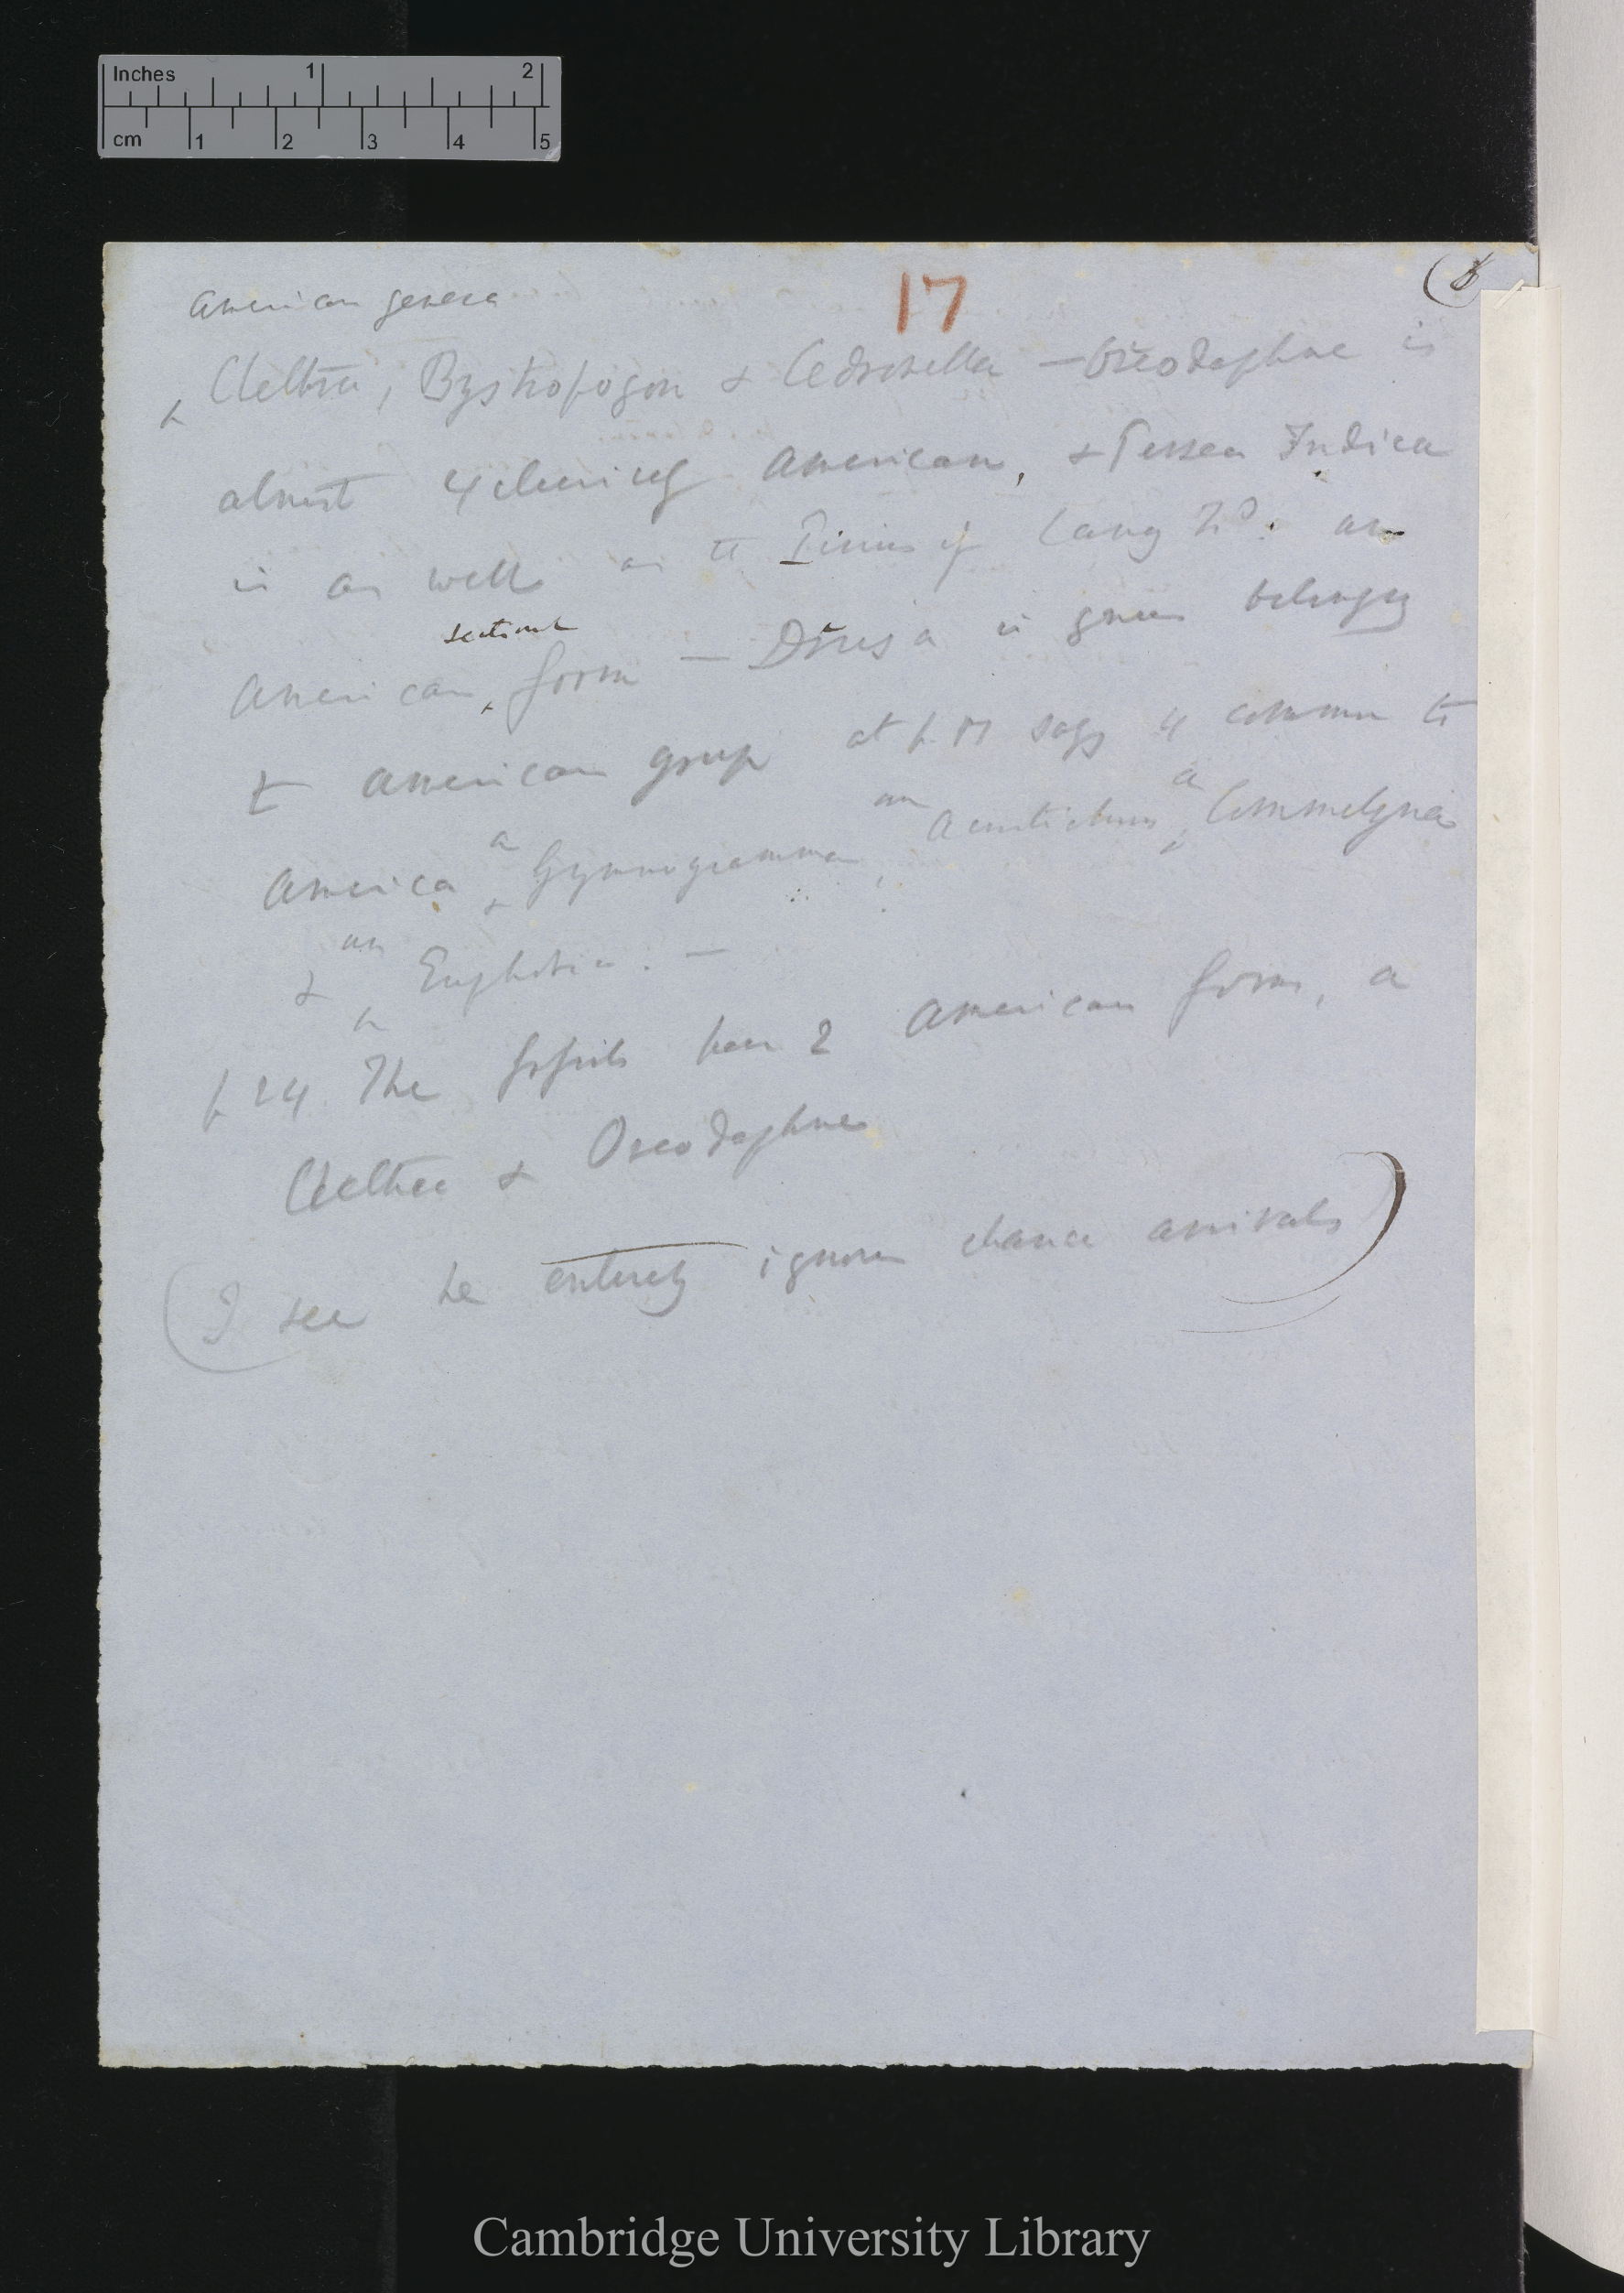 Inches 1 2
cm 1 2 3 4 5
17
American genera
Clethra, Bystropogon & Cedronella — Oreodaphne is
almost exclusively American, & Persea Indica
is as well as the Pinus of Canary Isd. an
sectional
American form — Drusa is genus belonging
to American group at p. 17 says 4 common to
a an a
America & Gymnogramma, Acrostichum, Commelyna
an
& Euphorbia. —
p 24 The fossils have 2 American forms, a
Clethra & Oreodaphne
(I see he entirely ignores chance arrivals)
Cambridge University Library